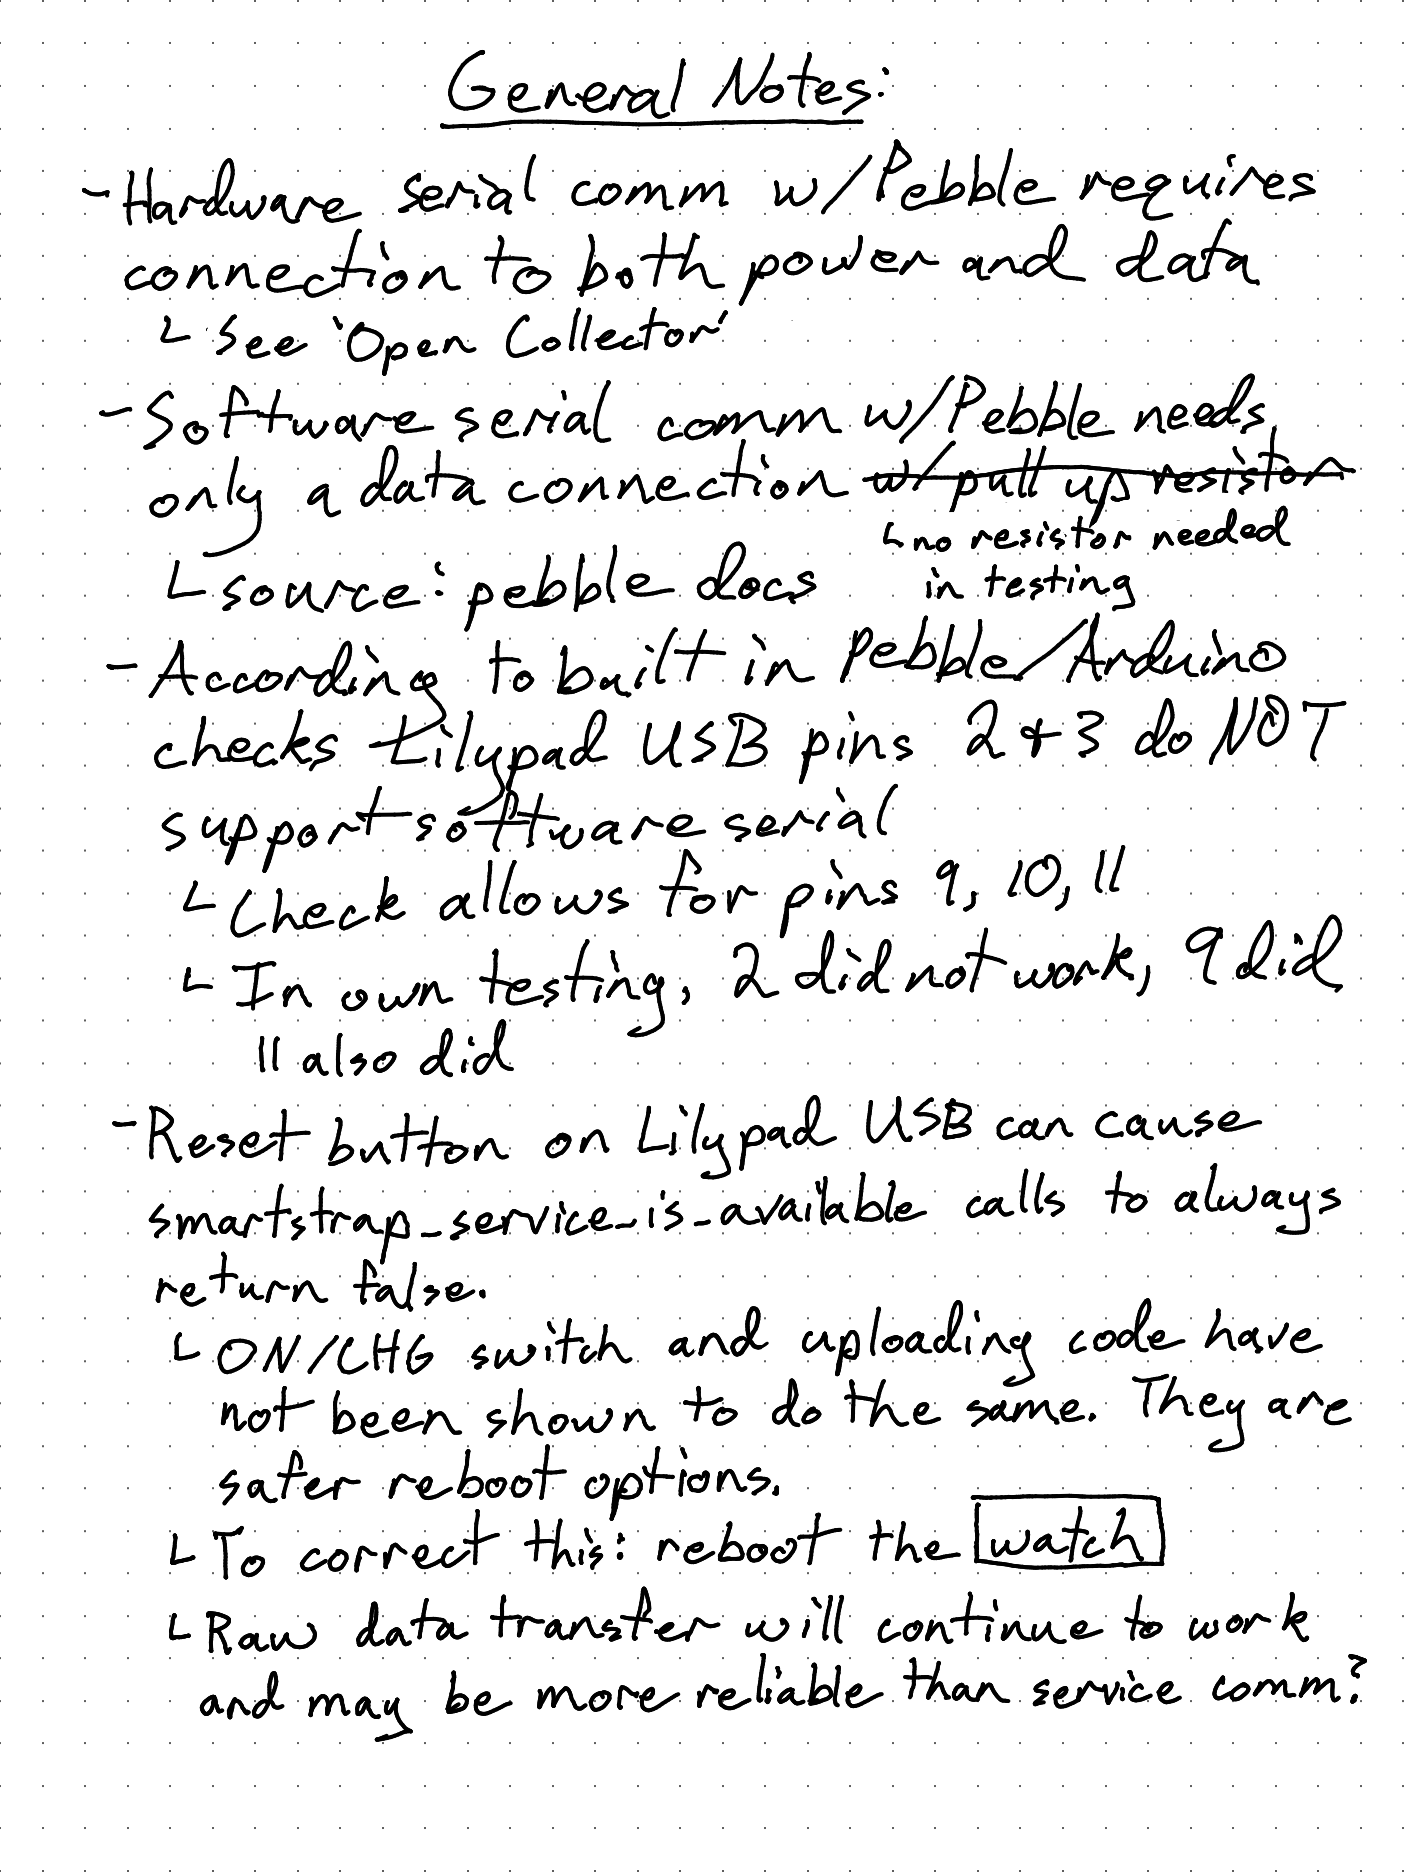 General Notes:
- Hardware serial comm w/Pebble requires
connection to both power and data
└ See 'Open Collector'
- Software serial comm w/Pebble needs
only a data connection w/ pull up resistor
└ no resistor needed
in testing
└ source: pebble docs
- According to built in Pebble/Arduino
checks Lilypad USB pins 2 & 3 do NOT
support software serial
└ Check allows for pins 9, 10, 11
└ In own testing, 2 did not work, 9 did,
11 also did
- Reset button on Lilypad USB can cause
smartstrap_service_is_available calls to always
return false.
└ ON/CHG switch and uploading code have
not been shown to do the same. They are
safer reboot options.
└ To correct this: reboot the watch
└ Raw data transfer will continue to work
and may be more reliable than service comm?